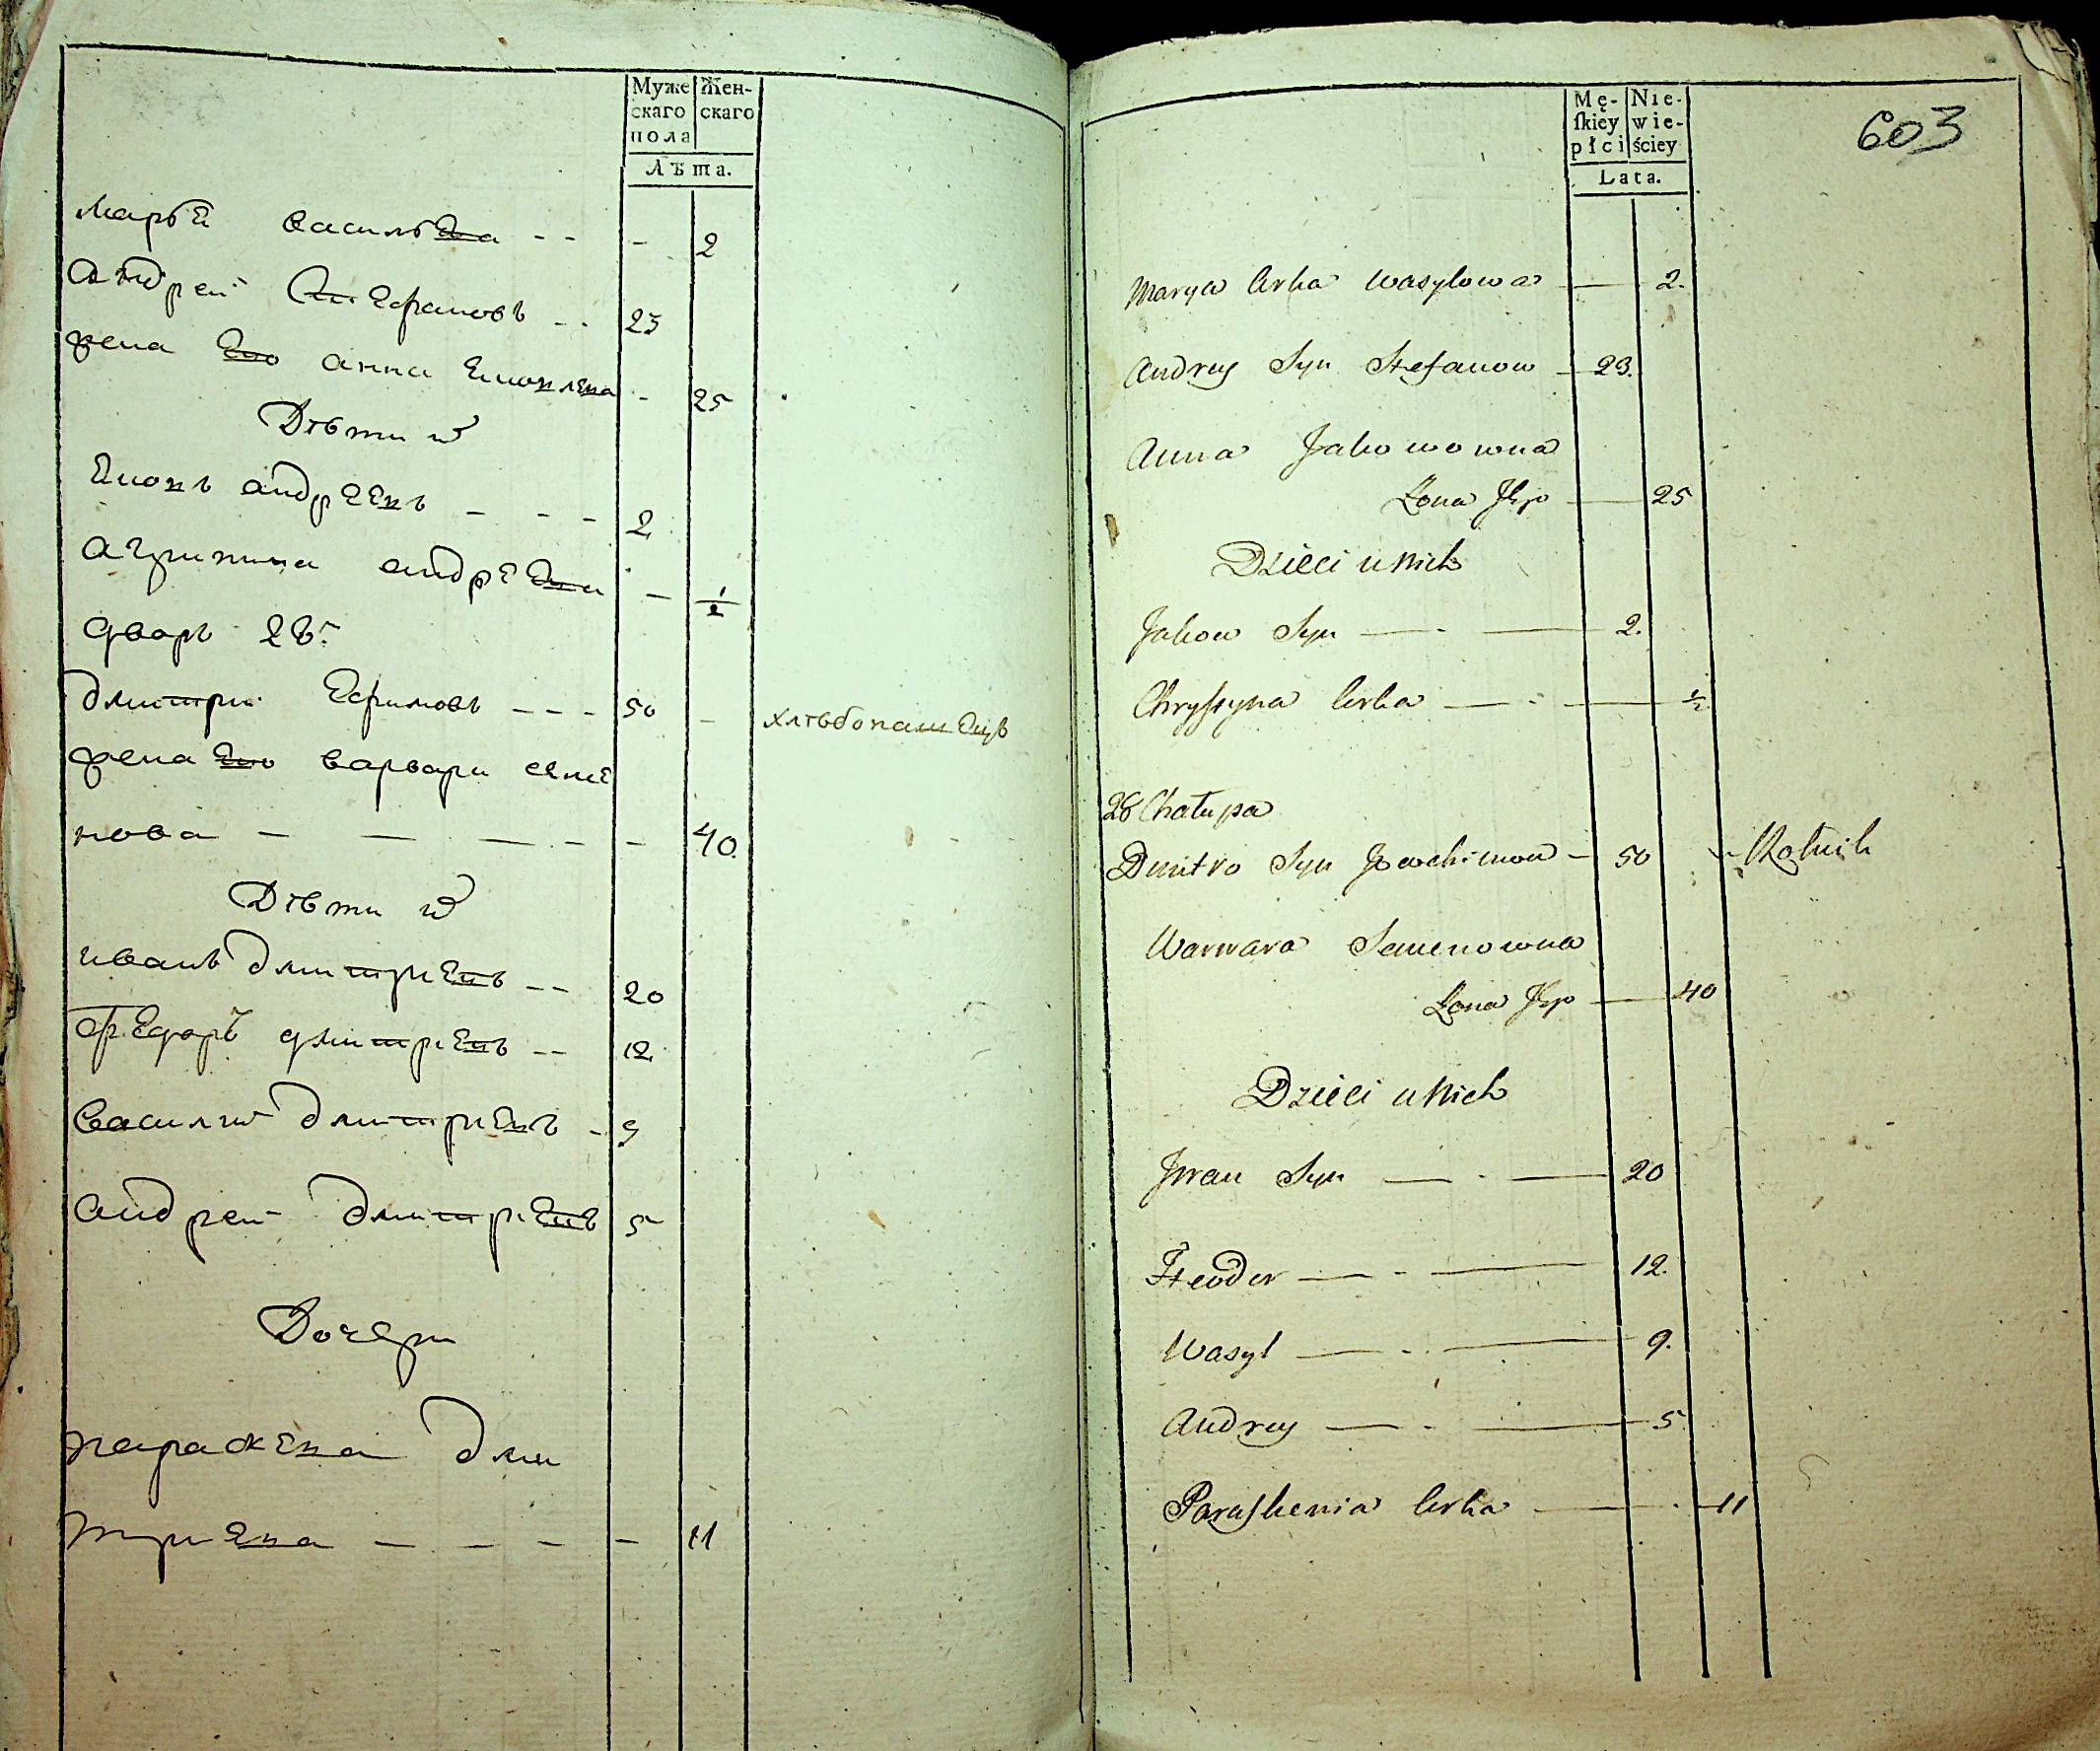 Муже Жен-
скаго скаго
пола
Лѣта.
Марья Васильева -- - 2
Андрей Стефановъ -- 23
жена Его анна Еиовлева - 25
Дѣти ихъ
Еиовъ андреевъ - - - 2
Агрипина андреева - 1/2
дворъ 28й
Дмитрий Ефимовъ --- 50 - хлѣбопашецъ
жена Его варвара семе
нова - - - - - 40.
Дѣти ихъ
иванъ дмитриевъ -- 20
Федоръ дмитриевъ -- 12
Василий дмитриевъ - 9
андрей дмитриевъ 5
Дочери
параскева дми
триева - - - - 11
603
Mę- Nie-
ſkiey wie-
płci ściey
Lata.
Marya Corka Wasylowa — 2.
Andrey Syn Stefanow — 23.
Anna Jakowowna
Żona Jego — 25
Dzieci u Nich
Jakow Syn — - — 2.
Chrystyna Corka — - — 1/2
28 Chałupa
Dmitro Syn Joachimow — 50 - Rolnik
Warwara Semenowna
Żona Jego — 40
Dzieci u Nich
Jwan Syn — - — 20
Fteodor — - — 12.
Wasyl — - — 9.
Andrey — - — 5.
Paraskenia Corka — - 11